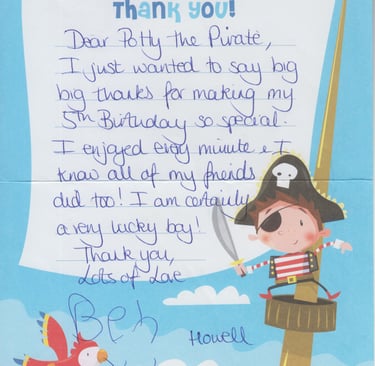 THANK YOU!
Dear Potty the Pirate,
I just wanted to say big
big thanks for making my
5th Birthday so special.
I enjoyed every minute & I
know all of my friends
did too! I am certainly
a very lucky boy!
Thank you,
Lots of Love
Ben
Howell